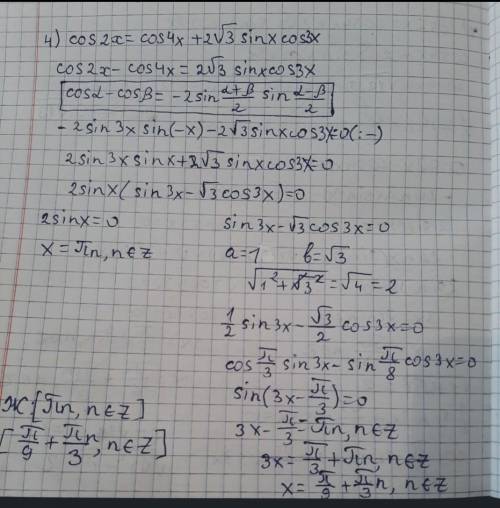 4) cos2x = cos4x + 2√3 sinx cos3x
cos2x - cos4x = 2√3 sinxcos3x
cosα - cosβ = -2sin (α+β)/2 sin (α-β)/2
- 2sin3x sin(-x) - 2√3 sinx cos3x=0 (:-)
2sin3x sinx + 2√3 sinx cos3x=0
2sinx( sin3x - √3 cos3x)=0
2sinx=0
x = πn, n∈Z
sin3x - √3 cos3x=0
a=1 b=√3
√(1² + √3²) = √4 = 2
1/2 sin3x - √3/2 cos3x=0
cos π/3 sin3x - sin π/8 cos3x=0
sin(3x - π/3)=0
3x - π/3 = πn, n∈Z
3x = π/3 + πn, n∈Z
x = π/9 + π/3 n, n∈Z
Ж: [πn, n∈Z]
[π/9 + π/3 n, n∈Z]